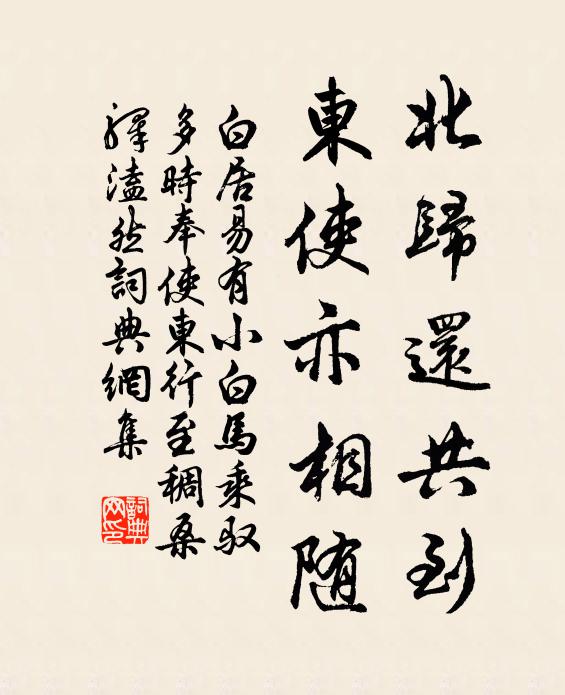 北歸還共到
東使亦相随
白居易有小白馬乘馭
多時奉使東行至稠桑
驛溘然詞典網集
詞典
网印